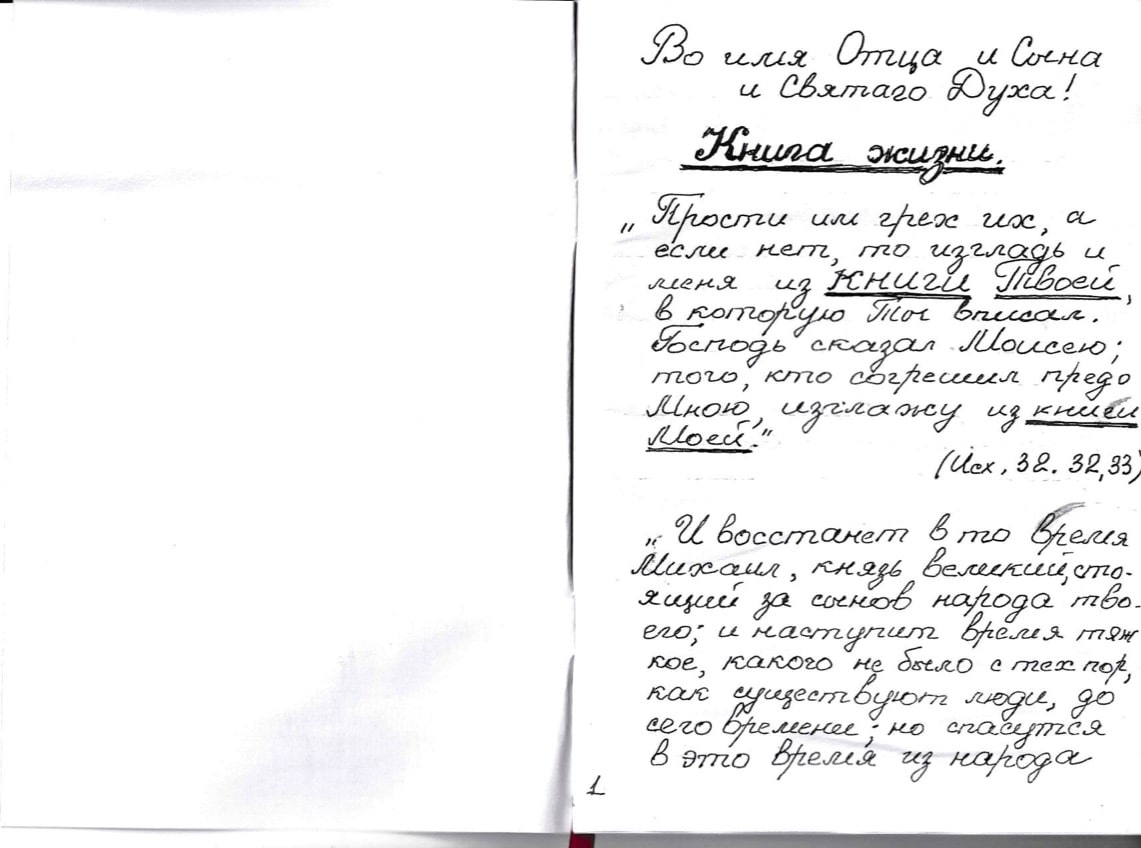 Во имя Отца и Сына
и Святаго Духа!
Книга жизни.
„Прости им грех их, а
если нет, то изгладь и
меня из книги Твоей,
в которую Ты вписал.
Господь сказал Моисею;
того, кто согрешил предо
Мною, изглажу из книги
Моей."
(Исх, 32. 32,33)
„И восстанет в то время
Михаил, князь великий, сто-
ящий за сынов народа тво-
его; и наступит время тяж
кое, какого не было с тех пор,
как существуют люди, до
сего времени; но спасутся
в это время из народа
1